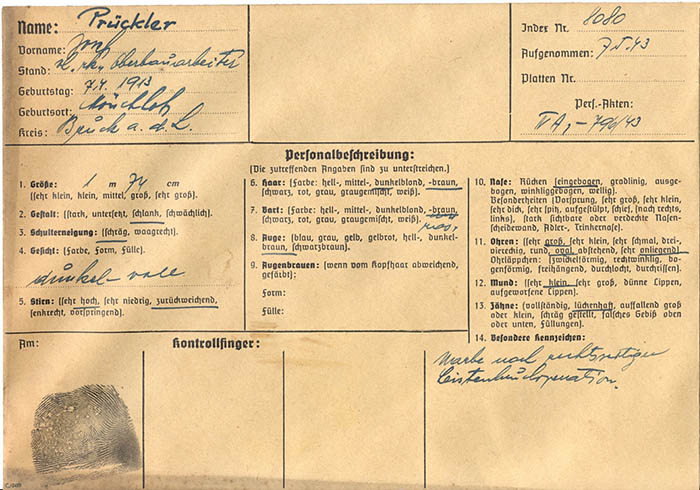 Name: Prückler
Vorname: Josef
Stand: Oberbauarbeiter
Geburtstag: 7.4. 1913
Geburtsort:
Kreis: Bruck a. d. L.
Index Nr. 8080
Aufgenommen: 7.V.43
Platten Nr.
Pers.-Akten:
IV A, – 796/43
Personalbeschreibung:
(Die zutreffenden Angaben sind zu unterstreichen.)
1. Größe: 1 m 74 cm
(sehr klein, klein, mittel, groß, sehr groß).
2. Gestalt: (stark, untersetzt, schlank, schwächlich).
3. Schulterneigung: (schräg, waagrecht).
4. Gesicht: (Farbe, Form, Fülle).
dunkel – voll
5. Stirn: (sehr hoch, sehr niedrig, zurückweichend,
senkrecht, vorspringend).
6. Haar: (Farbe: hell-, mittel-, dunkelblond, -braun,
schwarz, rot, grau, graugemischt, weiß).
7. Bart: (Farbe: hell-, mittel-, dunkelblond, -braun,
schwarz, rot, grau, graugemischt, weiß).
8. Auge: (blau, grau, gelb, gelbrot, hell-, dunkel-
braun, schwarzbraun).
9. Augenbrauen: (wenn vom Kopfhaar abweichend,
gefärbt):
Form:
Fülle:
10. Nase: Rücken (eingebogen, gradlinig, ausge-
bogen, winkliggebogen, wellig).
Besonderheiten (Vorsprung, sehr groß, sehr klein,
sehr dick, sehr spitz, aufgestülpt, schief, (nach rechts,
links), stark sichtbare oder verdeckte Nasen-
scheidewand, Adler-, Trinkernase).
11. Ohren: (sehr groß, sehr klein, sehr schmal, drei-,
viereckig, rund, oval, abstehend, sehr anliegend).
Ohrläppchen: (zwickelförmig, rechtwinklig, bo-
genförmig, freihängend, durchlocht, durchrissen).
12. Mund: (sehr klein, sehr groß, dünne Lippen,
aufgeworfene Lippen).
13. Zähne: (vollständig, lückenhaft, auffallend groß
oder klein, schräg gestellt, falsches Gebiß oben
oder unten, Füllungen).
14. Besondere Kennzeichen:
Narbe nach rechtsseitigen
Leistenbruchoperation.
Am:
Kontrollfinger: